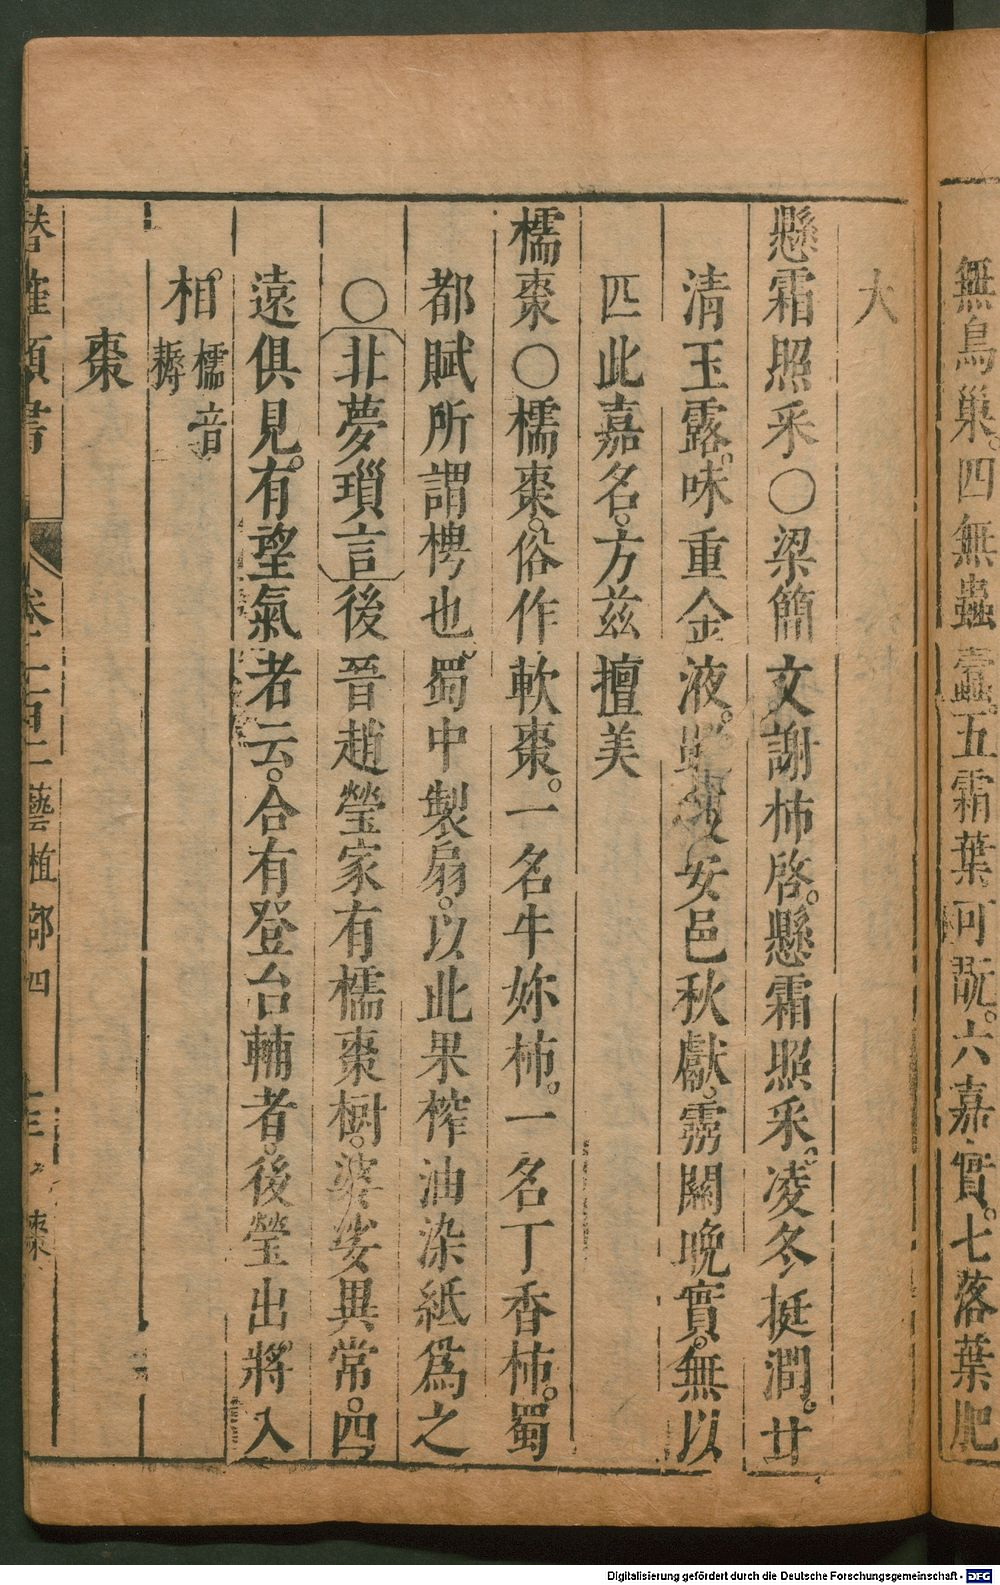 無鳥巢。四無蟲蠹。五霜葉可翫。六嘉實。七落葉肥
大
懸霜照采〇梁簡文謝柿啓。懸霜照采。凌冬挺潤。甘
清玉露。味重金液。安邑秋獻。霛關晚實。無以
匹此嘉名。方兹擅美
檽棗〇檽棗。俗作軟棗。一名牛妳柿。一名丁香柿。蜀
都賦所謂梬也。蜀中製扇。以此果榨油染紙爲之
〇北夢瑣言後晉趙瑩家有檽棗樹。婆娑異常。四
遠俱見。有望氣者云。合有登台輔者。後瑩出將入
相。檽音
耨
棗
潛確類書 卷一百二 藝植部四 棗
Digitalisierung gefördert durch die Deutsche Forschungsgemeinschaft - DFG